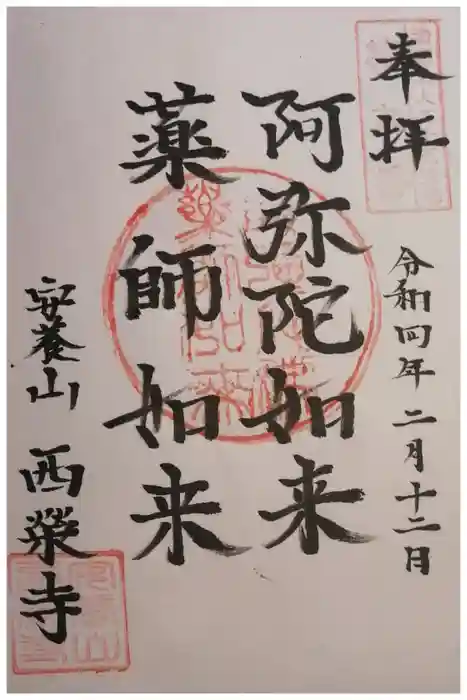 奉拝
令和四年二月十二日
阿弥陀如来
薬師如来
安養山 西榮寺